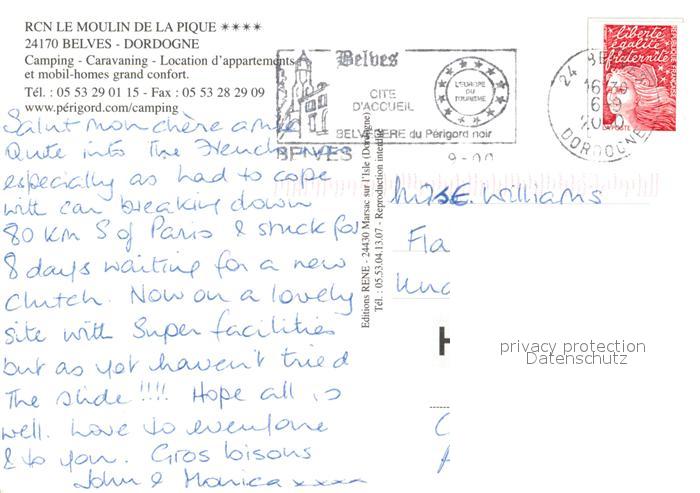 RCN LE MOULIN DE LA PIQUE ✶✶✶✶
24170 BELVES - DORDOGNE
Camping - Caravaning - Location d'appartements
et mobil-homes grand confort.
Tél. : 05 53 29 01 15 - Fax : 05 53 28 29 09
www.périgord.com/camping
Salut mon chère amie
Quite into the French
especially as had to cope
with car breaking down
80 km S of Paris & stuck for
8 days waiting for a new
clutch. Now on a lovely
site with super facilities
but as yet haven't tried
the slide !!!! Hope all is
well. Love to everyone
& to you. Gros bisous
John & Monica xxxx
Belves
CITE
D'ACCUEIL
L'EUROPE
DU
TOURISME
BELVEDERE du Périgord noir
BELVES
9-00
24 BE
16 30
6 9
DORDOGNE
liberté
égalité
fraternité
LA POSTE
Editions RENE - 24430 Marsac sur l'Isle (Dordogne)
Tél. : 05.53.04.13.07 - Reproduction interdite
E. Williams
Fla
H
privacy protection
Datenschutz